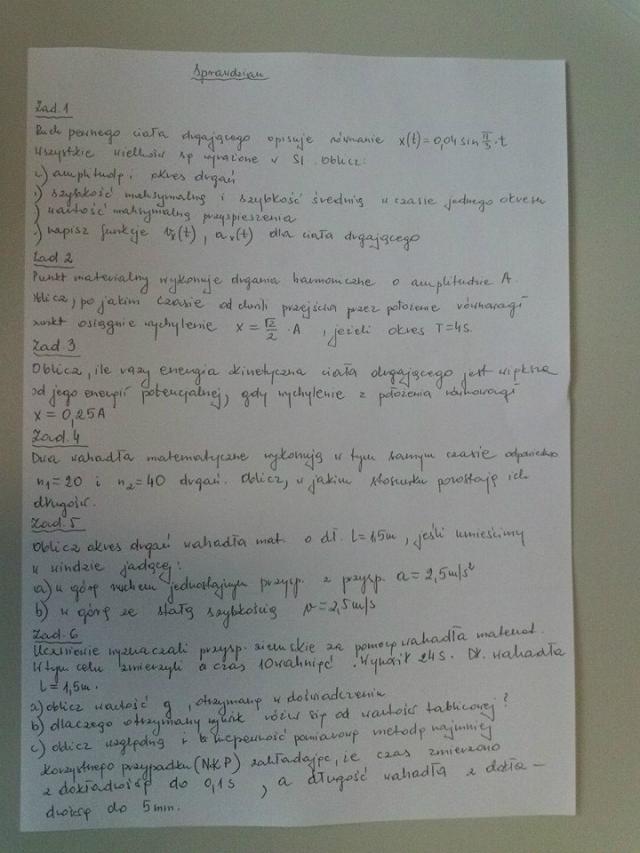 Sprawdzian
Zad.1
Ruch pewnego ciała drgającego opisuje równanie x(t)=0,04 sin π/5 · t
Wszystkie wielkości są wyrażone w SI. Oblicz:
) amplitudę i okres drgań
) szybkość maksymalną i szybkość średnią w czasie jednego okresu
) wartość maksymalną przyspieszenia
) napisz funkcje vx(t), ax(t) dla ciała drgającego
Zad 2
Punkt materialny wykonuje drgania harmoniczne o amplitudzie A.
Oblicz, po jakim czasie od chwili przejścia przez położenie równowagi
punkt osiągnie wychylenie x = √2/2 · A, jeżeli okres T=4s.
Zad 3
Oblicz, ile razy energia kinetyczna ciała drgającego jest większa
od jego energii potencjalnej, gdy wychylenie z położenia równowagi
x = 0,25A
Zad.4
Dwa wahadła matematyczne wykonują w tym samym czasie odpowiednio
n₁=20 i n₂=40 drgań. Oblicz, w jakim stosunku pozostają ich
długości.
Zad.5
Oblicz okres drgań wahadła mat. o dł. l=1,5m, jeśli umieścimy
w windzie jadącej:
a) w górę ruchem jednostajnym przysp. z przysp. a = 2,5m/s²
b) w górę ze stałą szybkością v=2,5m/s
Zad.6
Uczniowie wyznaczali przysp. ziemskie za pomocą wahadła matemat.
W tym celu zmierzyli czas 10 wahnięć. Wynosił 24s. Dł. wahadła
l = 1,5m.
a) oblicz wartość g, otrzymaną w doświadczeniu
b) dlaczego otrzymany wynik różni się od wartości tablicowej?
c) oblicz względną i niepewność pomiarową metodą najmniej
korzystnego przypadku (NKP) zakładając, że czas zmierzono
z dokładnością do 0,1s, a długość wahadła z dokła-
dnością do 5mm.